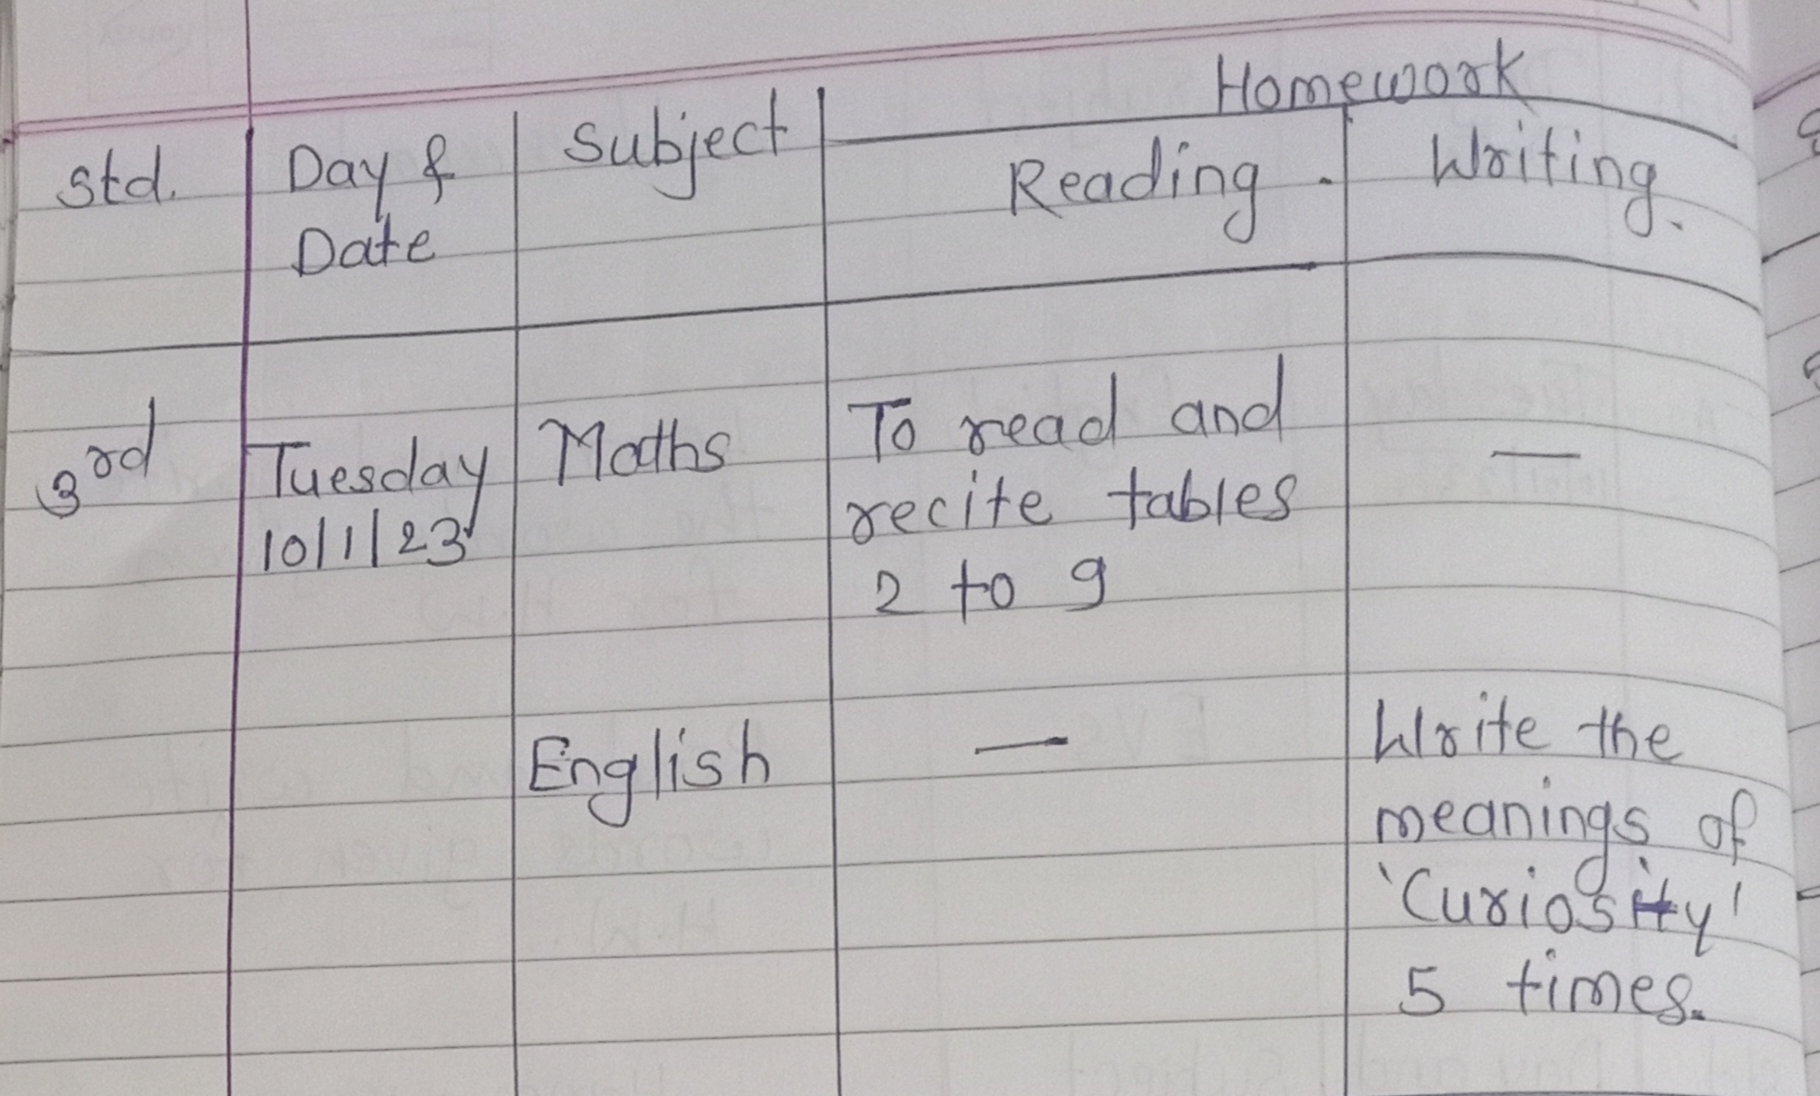 Homework
Std. Day & Subject Reading. Writing.
Date
3rd Tuesday Maths To read and —
10/1/23 recite tables
2 to 9
English — Write the
meanings of
'Curiosity'
5 times.